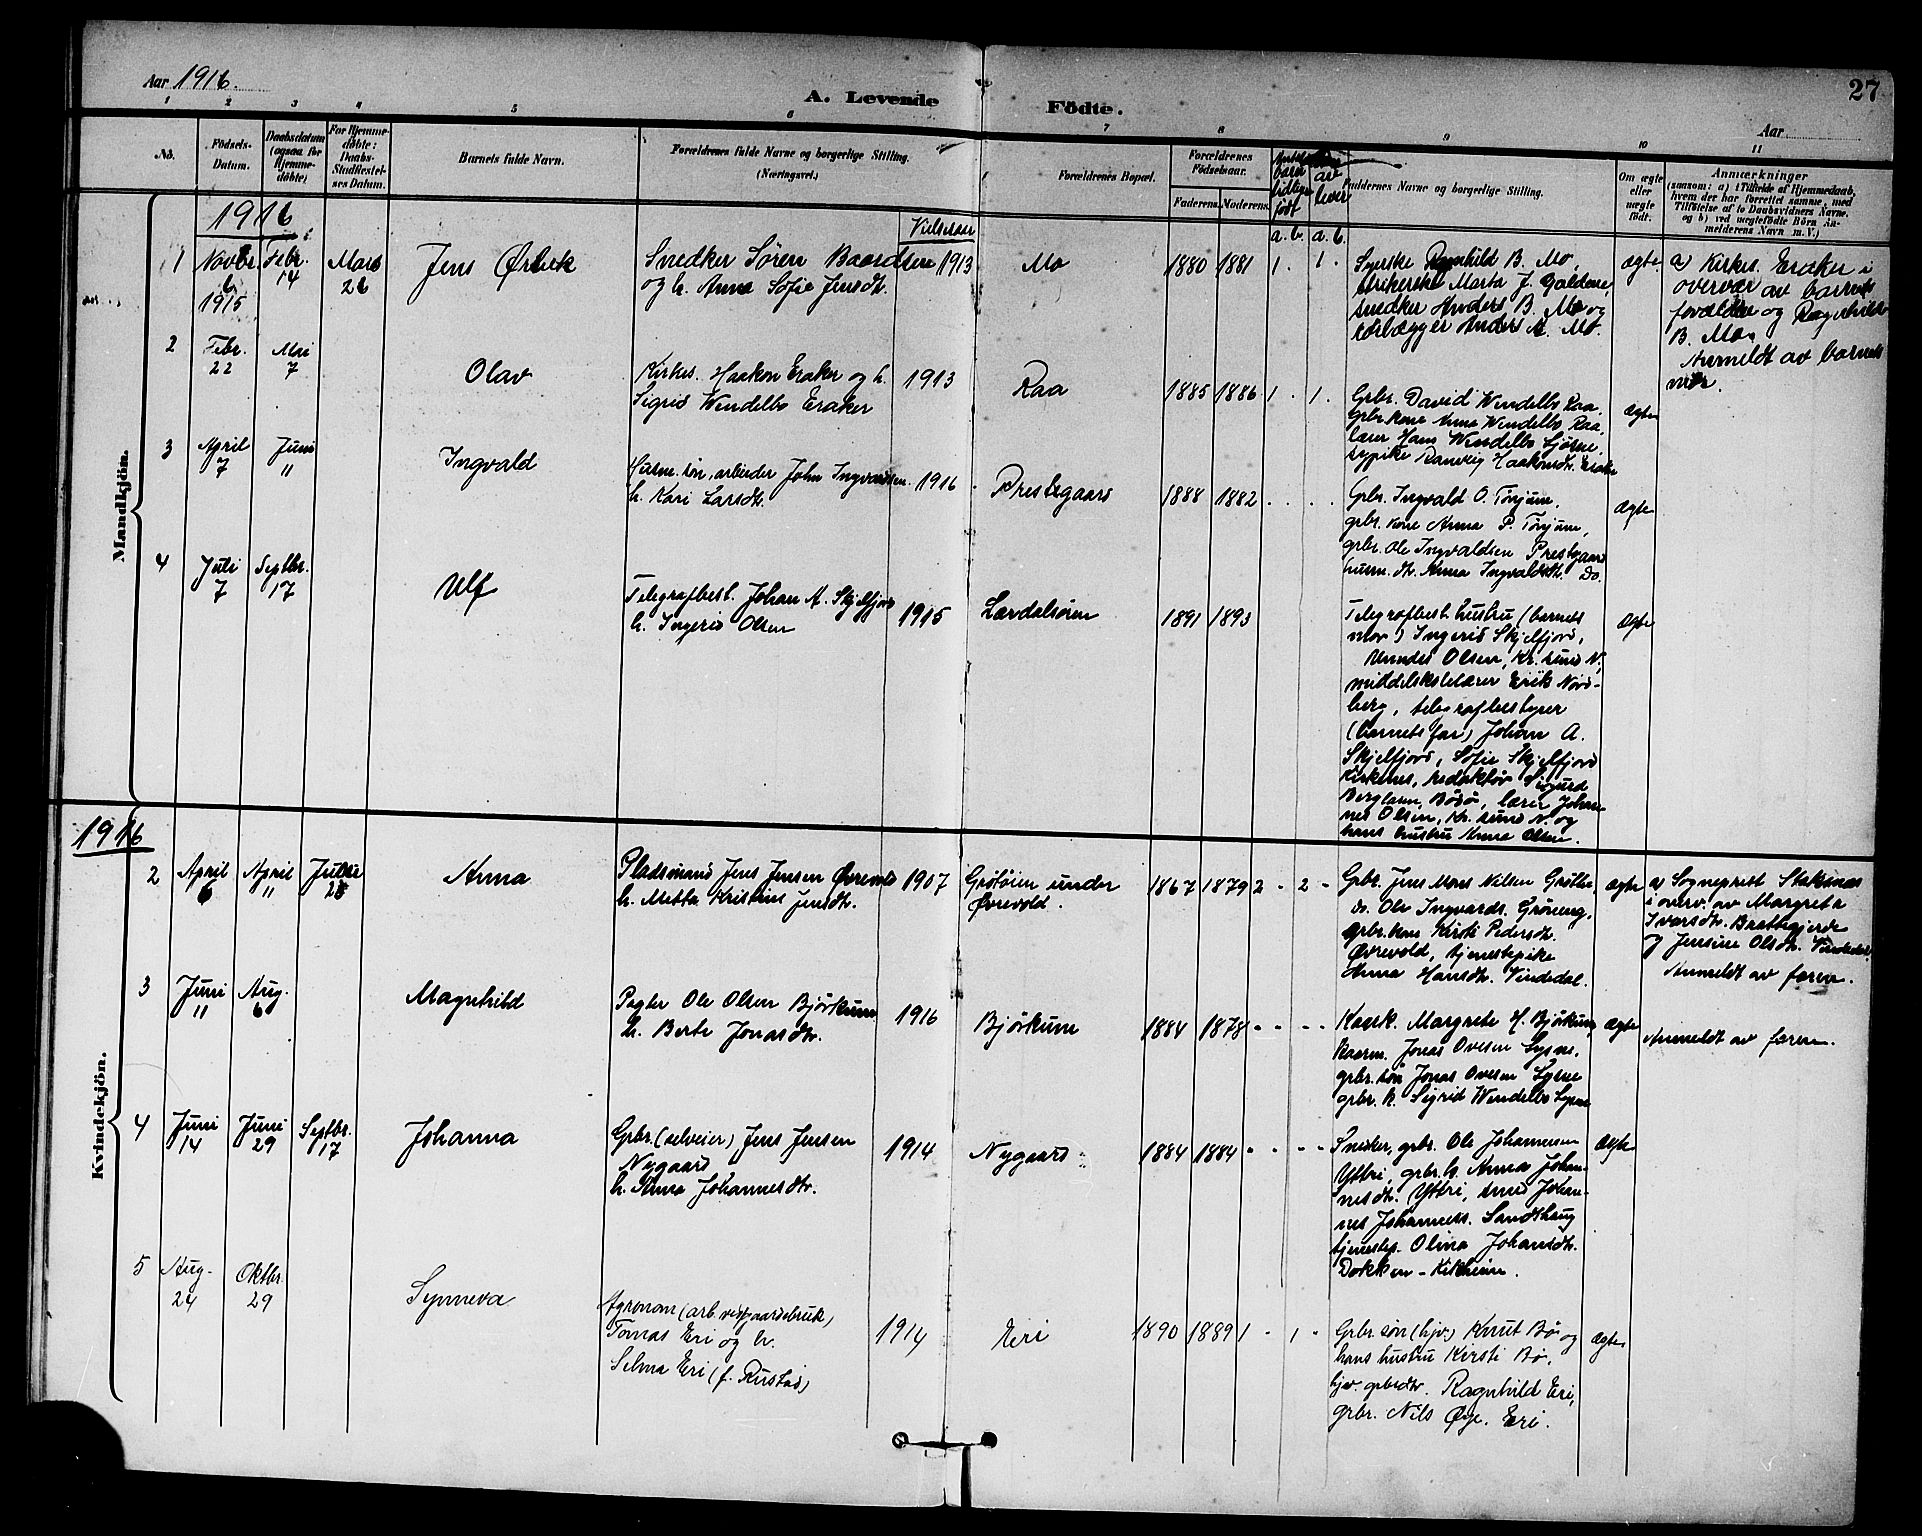 Aar 1916.
A. Levende Födte.
27
Aar
1 2 3 4 5 6 7 8 9 10 11
No.
Födsels-
Datum.
Daabsdatum
(ogsaa for
Hjemme-
döbte)
For Hjemme-
döbte:
Daabs-
Stadfæstel-
ses Datum.
Barnets fulde Navn.
Forældrenes fulde Navne og borgerlige Stilling.
(Næringsvei.)
Forældrenes Bopæl.
Forældrenes
Födselsaar.
Faderens. Moderens.
Antal
barn
tidligere
født
av
lever
a. b. a. b.
Faddernes Navne og borgerlige Stilling.
Om ægte
eller
uægte
födt.
Anmærkninger
(saasom: a) i Tilfælde af Hjemmedaab,
hvem der har forrettet samme, med
Tilföielse af to Daabsvidners Navne.
og b) ved uægtefödte Börn An-
melderens Navn m. V.)
Vielsesaar
Mandkjön.
1916
1
Novbr.
6
1915
Febr.
14
Mars
26
Jens Ørbæk
Snedker Sören Baardsen
og h. Anna Sofie Jensdt.
1913
Mo
1880 1881 1 . 1 .
Syerske Ragnhild B. Mo,
strikerske Marta J. Galdene,
snedker Anders B. Mo og
Anders A. Mo.
ægte
a) Kirkes. Eraker i
overvær av barnets
forældre og Ragnhild
B. Mo.
Anmeldt av barnets
mor.
2
Febr.
22
Mai
7
Olav
Kirkes. Haakon Eraker og h.
Sigrid Wendelbo Eraker
1913
Raa
1885 1886 1 . 1 .
Grbr. David Wendelbo Raa.
Grbr. kone Anna Wendelbo Raa,
lærer Hans Wendelbo Ljösne,
sypike Ranveig Haakonsdt. Eraker
ægte
3
April
7
Juni
11
Ingvald
Husm. sön, arbeider John Ingvardsen
h. Kari Larsdt.
1916
Prestegaard
1888 1882
Grbr. Ingvald O. Tönjum,
grbr. kone Anna P. Tönjum,
grbr. Ole Ingvaldsen Prestgaard
husm. dt. Anna Ingvaldsdt. Do.
ægte
4
Juli
7
Septbr.
17
Ulf
Telegrafbest. Johan A. Skjelfjord
h. Ingerid Olsen
1915
Lærdalsören
1891 1893
Telegrafbest. hustru (barnets
mor) Ingerid Skjelfjord,
Olsen, Kr.sund N,
middelskolelærer Erik Nord-
berg, telegrafbestyrer
(barnets far) Johan A.
Skjelfjord, Sofie Skjelfjord
Kirkenes, redaktör Sigurd
Berglann, Bodø, lærer Johan-
nes Olsen, Kr.sund N. og
hans hustru Anna Olsen.
ægte
1916
Kvindekjön.
2
April
6
April
11
Anna
Pladsmand Jens Jensen Øvrevold
h. Metta Kristine Jensdt.
1907
Grötöien under
Øvrevold.
1867 1879 2 - 2 -
Grbr. Jens Mons Nilsen
Do. Ole Ingvards. Gröneng,
grbr. kone Kirsti Pedersdt.
Øvrevold, tjenestepike
Anna Hansdt. Vindedal.
ægte
a) Sogneprest
i overv. av Margreta
Ivarsdt. Brattegjerde
og Jensine Olsdt. Vindedal.
Anmeldt av faren.
3
Juni
11
Aug.
6
Magnhild
Pagter Ole Olsen Bjørkum
h. Berte Jonasdt.
1916
Bjørkum
1884 1878 - - - -
Kaark. Margrete H. Bjørkum,
kaarm. Jonas Ovesen Lysne,
grbr. sön Jonas Ovesen Lysne
grbr. k. Sigrid Wendelbo Lysne
ægte
Anmeldt av faren.
4
Juni
14
Juni
29
Septbr.
17
Johanna
Grbr. (selveier) Jens Jensen
Nygaard
h. Anna Johannesdt.
1914
Nygaard
1884 1884 - - - -
Snedker, grbr. Ole Johannesen
Yttri, grbr. h. Anna Johan-
nesdt. Yttri, smed Johan-
nes Johanness. Sandshaug
tjenestep. Olina Johansdt.
Dokken -
ægte
5
Aug.
24
Oktbr.
29
Synneva
Agronom (arb. ved gaardsbruk)
Tomas Eri og h.
Selma Eri (f. Rustad)
1914
Eri
1890 1889 1 - 1 -
Grbr. sön (hjv.) Knut Bø og
hans hustru Kirsti Bø,
hjv. grbrdtr. Ragnhild Eri,
grbr. Nils Øye. Eri.
ægte